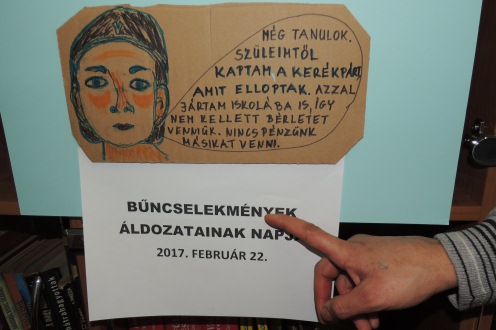 MÉG TANULOK.
SZÜLEIMTŐL
KAPTAM A KERÉKPÁRT
AMIT ELLOPTAK. AZZAL
JÁRTAM ISKOLÁBA IS, ÍGY
NEM KELLETT BÉRLETET
VENNÜNK. NINCS PÉNZÜNK
MÁSIKAT VENNI.
BŰNCSELEKMÉNYEK
ÁLDOZATAINAK
2017. FEBRUÁR 22.